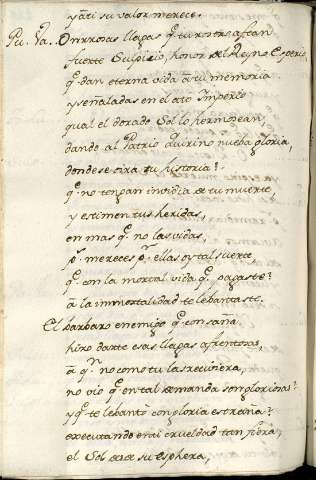 y así su valor merece.
Pu. Va. Onrrosas llagas q̃ tu rostro afean
fuerte Sulpicio, honor del Reyno Esperio
q̃ dan eterna vida a tu memoria
y señaladas en el ato Imperio
qual el dorado Sol lo hermosean,
dando al Patrio Quirino nueba gloria
donde se oira tu historia?
q̃ no tengan invidia de tu muerte
y estimen tus heridas,
en mas q̃ no las vidas,
p^s mereces p^r ellas oy tal suerte
q̃ en la mortal vida q̃ pagaste?
a la immortalidad te lebantaste.
El barbaro enemigo q̃ con saña
hizo darte esas llagas afrentosas,
a q^n no como tu las reciviera,
no vio q̃ en tal demanda son gloriosas?
y q̃ te lebantò con gloria estraña?
executando en ti crueldad tan fiera,
el Sol de su Esphera,